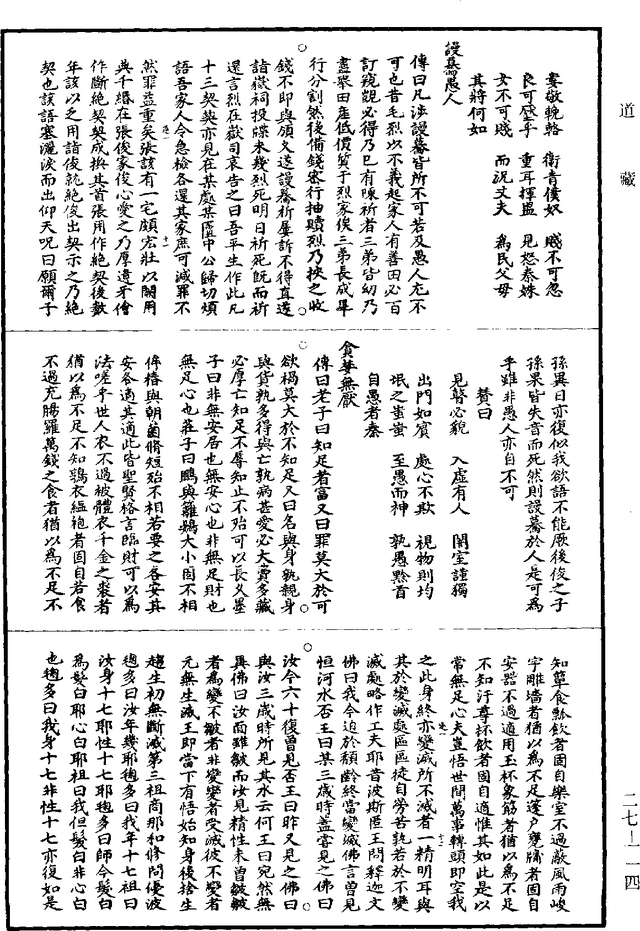 道藏
婁敬輓輅　衛青僕奴　賤不可忽
良可壓乎　重耳揮盥　見怒秦姝
女不可賤　而況丈夫　為民父母
其將何如
謾驀愚人
傳曰凡法謾驀皆所不可若及愚人尤不
可也昔毛烈以不義起家人有善田必百
計窺覬必得乃已有陳祈者三弟皆幼乃
盡舉田產低價質于烈家俟三弟長成畢
行分割然後備錢密行抽贖烈乃抉之收
錢不即與領又送謾驀祈屢訴不得直遂
詣嶽祠投牒未幾烈死明日祈死既而祈
還言烈在嶽司哀告之曰吾平生作此凡
十三契契亦見在某處某匱中公歸切煩
語吾家人令急檢各還其家庶可減罪不
然罪益重矣張該有一宅頗宏壯以闕用
典千緡在張俊家俊心愛之乃厚遺牙儈
作斷絕契契成換其首張用作絕契後數
年該以之用諸俊就絕俊出契示之乃絕
契也該語塞灑淚而出仰天呪曰願爾子
孫異日亦復似我欲語不能厥後俊之子
孫果皆失音而死然則謾驀於人是可為
乎雖非愚人亦自不可
贊曰
見瞽必貌　入虛有人　闇室謹獨
出門如賓　處心不欺　視物則均
氓之蚩蚩　至愚而神　孰愚黔首
自愚者秦
貪婪無厭
傳曰老子曰知足者富又曰罪莫大於可
欲禍莫大於不知足又曰名與身孰親身
與貨孰多得與亡孰病甚愛必大費多藏
必厚亡知足不辱知止不殆可以長久墨
子曰非無安居也無安心也非無足財也
無足心也莊子曰鵬與籬鷃大小固不相
侔椿與朝菌脩短殆不相若要之各安其
安各適其適此皆聖賢格言臨財可以為
法嗟乎世人衣不過被體衣千金之裘者
猶以為不足不知鶉衣縕袍者固自若食
不過充腸羅萬錢之食者猶以為不足不
知簞食瓢飲者固自樂室不過蔽風雨峻
宇雕墻者猶以為不足蓬戶甕牖者固自
安器不過適用玉杯象筯者猶以為不足
不知汙尊抔飲者固自適惟其如此是以
常無足心夫豈悟世間萬事轉頭即空我
之此身終亦變滅所不滅者一精明耳與
其於變滅處區區徒自勞苦孰若於不變
滅處略作工夫耶昔波斯匿王問釋迦文
佛曰我今迫於頹齡終當變滅佛言曾見
恒河水否王曰某三歲時蓋嘗見之佛曰
汝今六十復曾見否王曰昨又見之佛曰
與汝三歲時所見其水云何王曰宛然無
異佛曰汝而雖皺而汝見精性未曾皺皺
者為變不皺者非變變者受滅彼不變者
元無生滅王即當下有悟始知身後捨生
趣生初無斷滅第三祖商那和修問優波
毱多曰汝年幾耶毱多曰我年十七祖曰
汝身十七耶性十七耶毱多曰師今髮白
為髮白耶心白耶祖曰我但髮白非心白
也毱多曰我身十七非性十七亦復如是
二七—一四